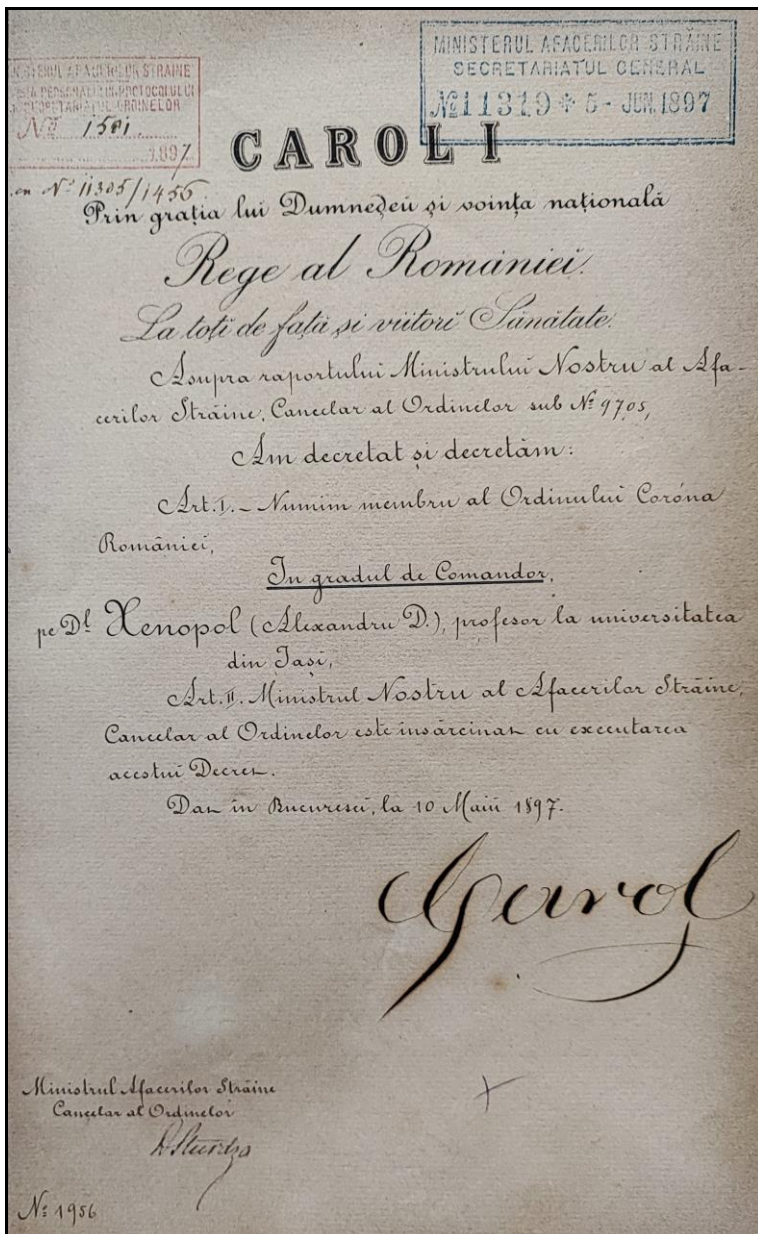 MINISTERUL AFACERILOR STRĂINE
SECRETARIATUL GENERAL
№ 11319 ✢ 5 - JUN. 1897
AFACERILOR STRAINE
PROTOCOLULUI
SECRETARIATUL ORDINELOR
№ 1501
1897
№ 11305/1456
CAROL I
Prin grația lui Dumnedeu și voința națională
Rege al României.
La toți de față și viitori Sănătate.
Asupra raportului Ministrului Nostru al Afa-
cerilor Străine, Cancelar al Ordinelor sub № 9705,
Am decretat și decretăm:
Art. I. - Numim membru al Ordinului Coróna
României,
In gradul de Comandor,
pe Dl Xenopol (Alexandru D.), profesor la universitatea
din Iași,
Art. II. Ministrul Nostru al Afacerilor Străine,
Cancelar al Ordinelor este însărcinat cu executarea
acestui Decret.
Dat in Bucuresci, la 10 Maiŭ 1897.
Carol
Ministrul Afacerilor Străine
Cancelar al Ordinelor
D Sturdza
№ 1956